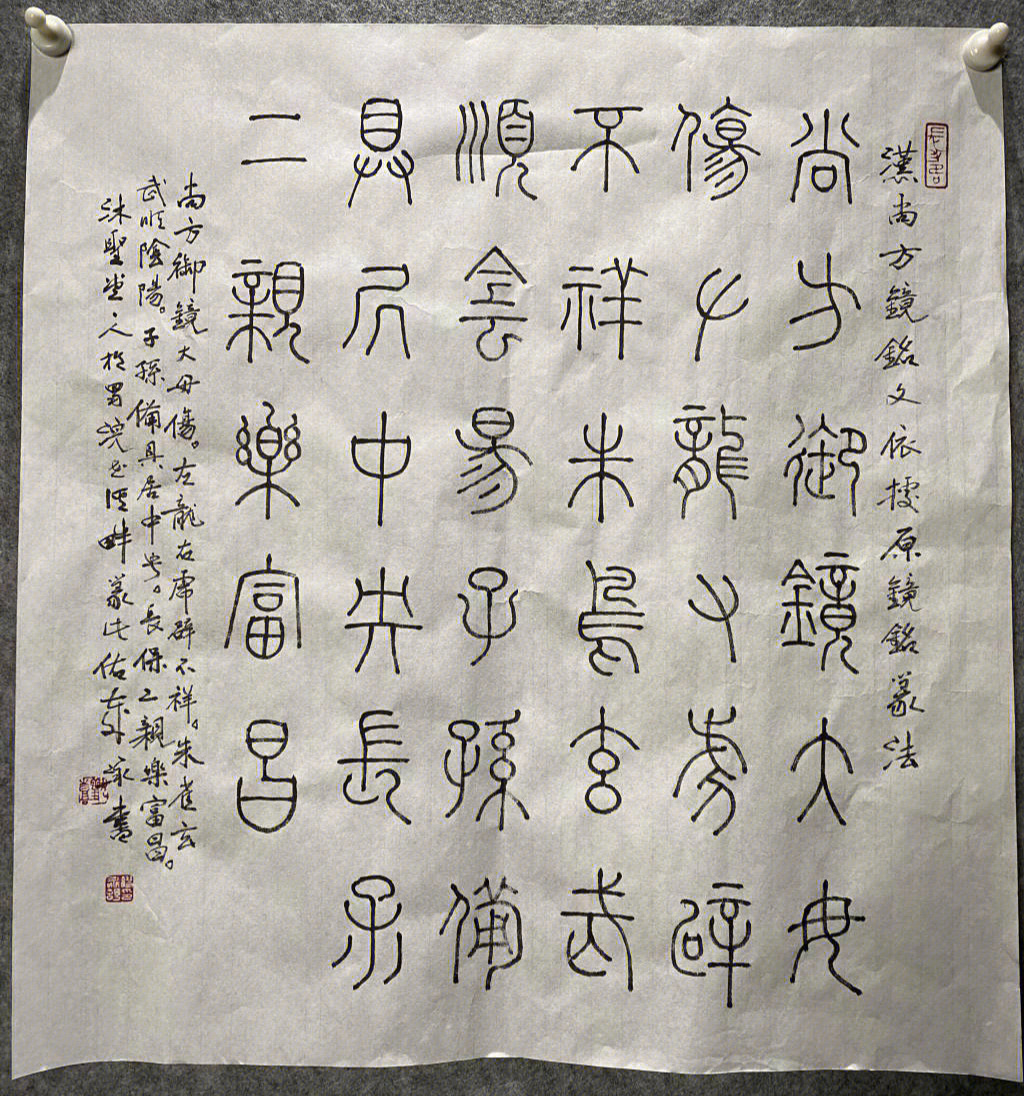 漢尚方鏡銘文依據原鏡銘篆法
尚方御鏡大毋
傷𠂇龍又虎辟
不祥朱鳥玄武
順侌昜子孫備
具凥中央長保
二親樂富昌
尚方御鏡大毋傷。左龍右虎辟不祥。朱雀玄
武順陰陽。子孫備具居中央。長保二親樂富昌。
沐聖堂人於蜀浣花溪畔篆此佑書